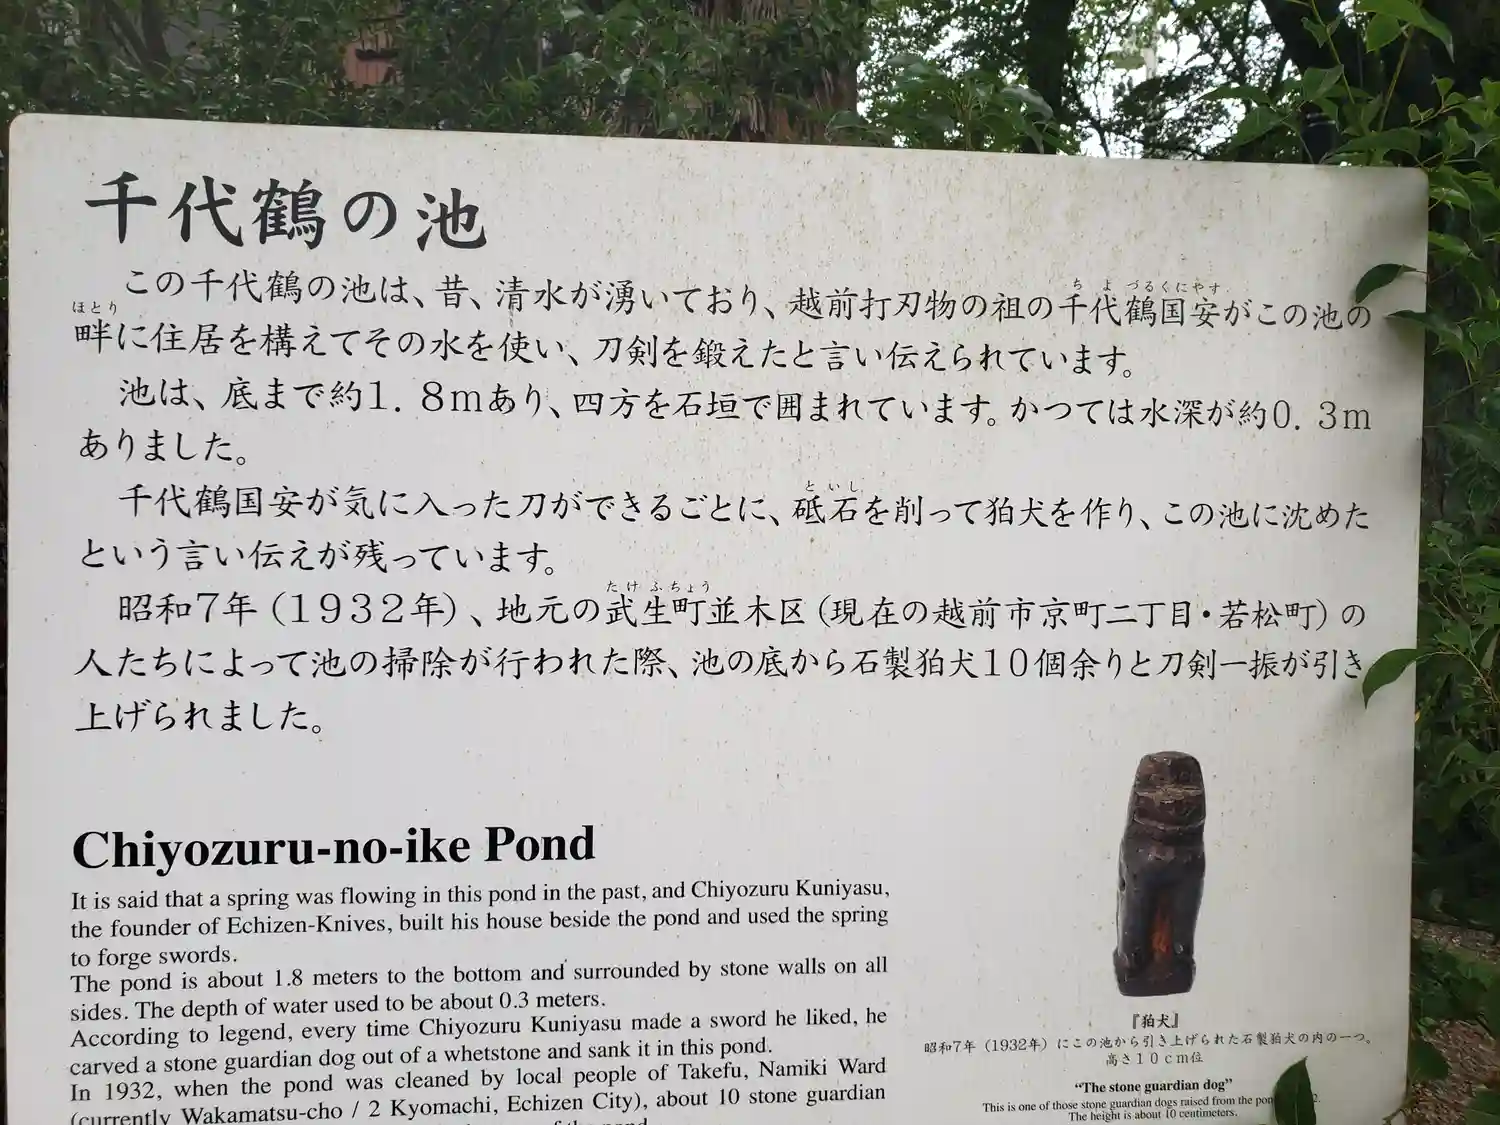 千代鶴の池
この千代鶴の池は、昔、清水が湧いており、越前打刃物の祖の千代鶴国安がこの池の
ちよづるくにやす
畔に住居を構えてその水を使い、刀剣を鍛えたと言い伝えられています。
ほとり
池は、底まで約1.8mあり、四方を石垣で囲まれています。かつては水深が約0.3m
ありました。
千代鶴国安が気に入った刀ができるごとに、砥石を削って狛犬を作り、この池に沈めた
といし
という言い伝えが残っています。
昭和7年(1932年)、地元の武生町並木区(現在の越前市京町二丁目・若松町)の
たけふちょう
人たちによって池の掃除が行われた際、池の底から石製狛犬10個余りと刀剣一振が引き
上げられました。
Chiyozuru-no-ike Pond
It is said that a spring was flowing in this pond in the past, and Chiyozuru Kuniyasu,
the founder of Echizen-Knives, built his house beside the pond and used the spring
to forge swords.
The pond is about 1.8 meters to the bottom and surrounded by stone walls on all
sides. The depth of water used to be about 0.3 meters.
According to legend, every time Chiyozuru Kuniyasu made a sword he liked, he
carved a stone guardian dog out of a whetstone and sank it in this pond.
In 1932, when the pond was cleaned by local people of Takefu, Namiki Ward
(currently Wakamatsu-cho / 2 Kyomachi, Echizen City), about 10 stone guardian
『狛犬』
昭和7年(1932年)にこの池から引き上げられた石製狛犬の内の一つ。
高さ10cm位
"The stone guardian dog"
This is one of those stone guardian dogs raised from the
The height is about 10 centimeters.